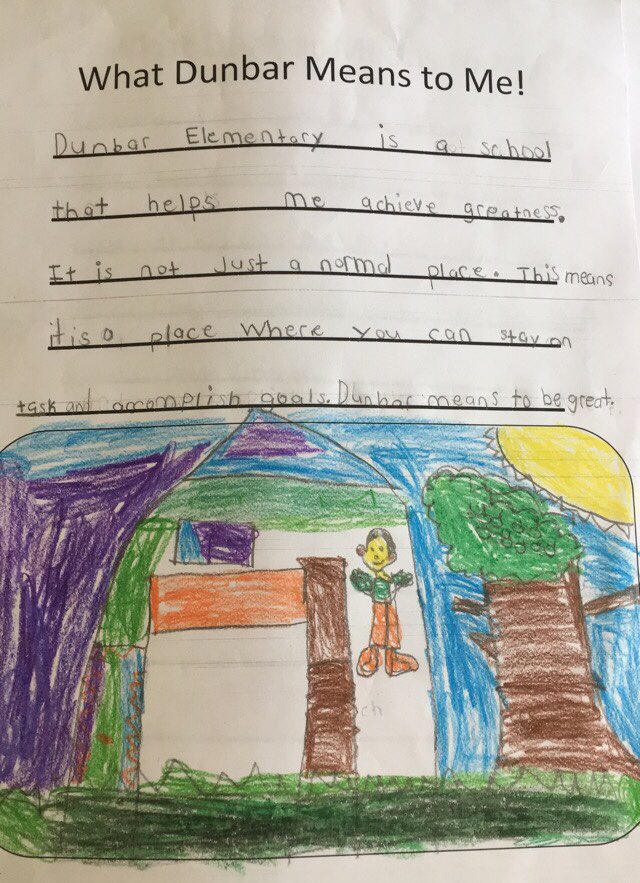 What Dunbar Means to Me!
Dunbar Elementary is a school
that helps me achieve greatness.
It is not just a normal place. This means
it is a place where you can stay on
task and accomplish goals. Dunbar means to be great.